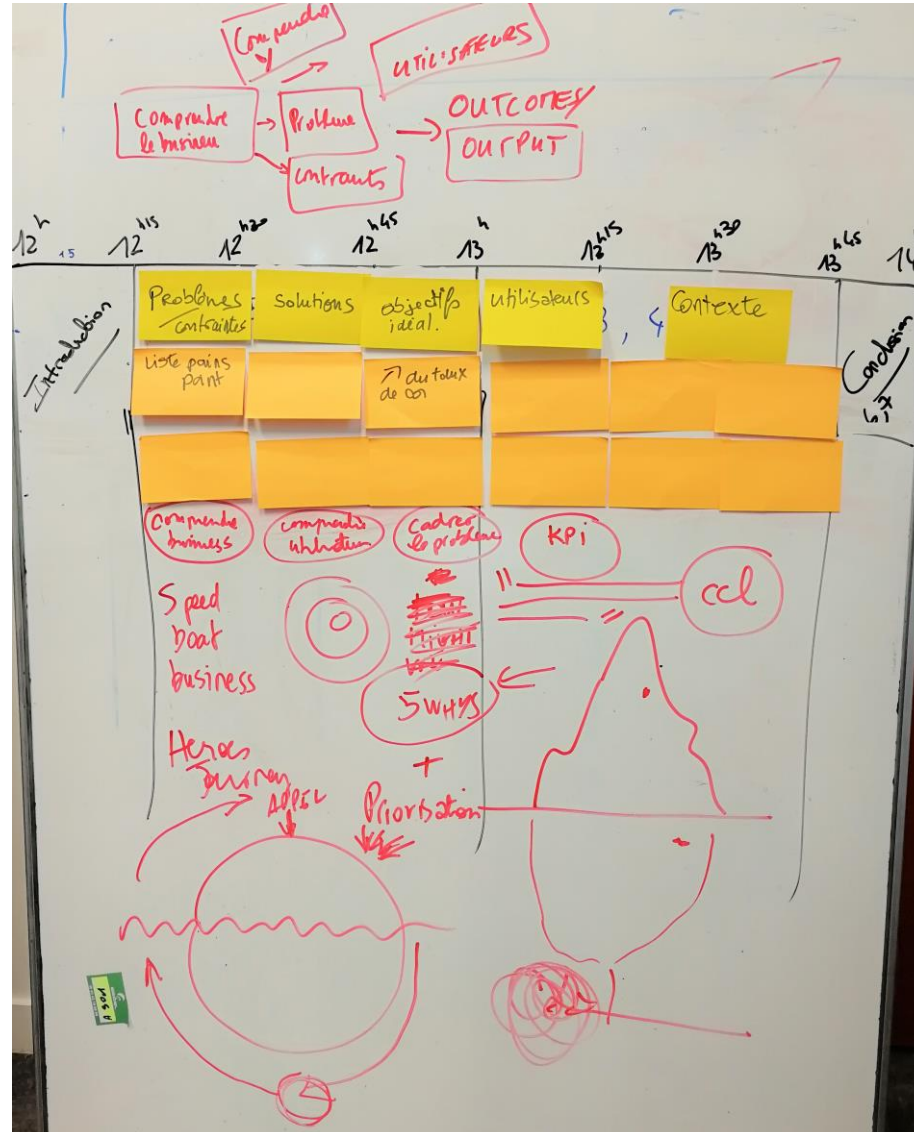 Comprendre
UTILISATEURS
Comprendre
le business
Problème
contraints
OUTCOMES/
OUTPUT
12h
15
12h15
12h30
12h45
13h
13h15
13h30
13h45
14
Introduction
Problèmes
/contraintes
Solutions
objectifs
idéal.
utilisateurs
3, 4
Contexte
Conclusion
Liste pains
point
↗ du taux
de con
comprendre
business
comprendre
utilisateur
Cadrer
le problème
KPi
ccl
Speed
boat
business
5 WHYS
Heroes
Journey
+
APPEL
Priorisation